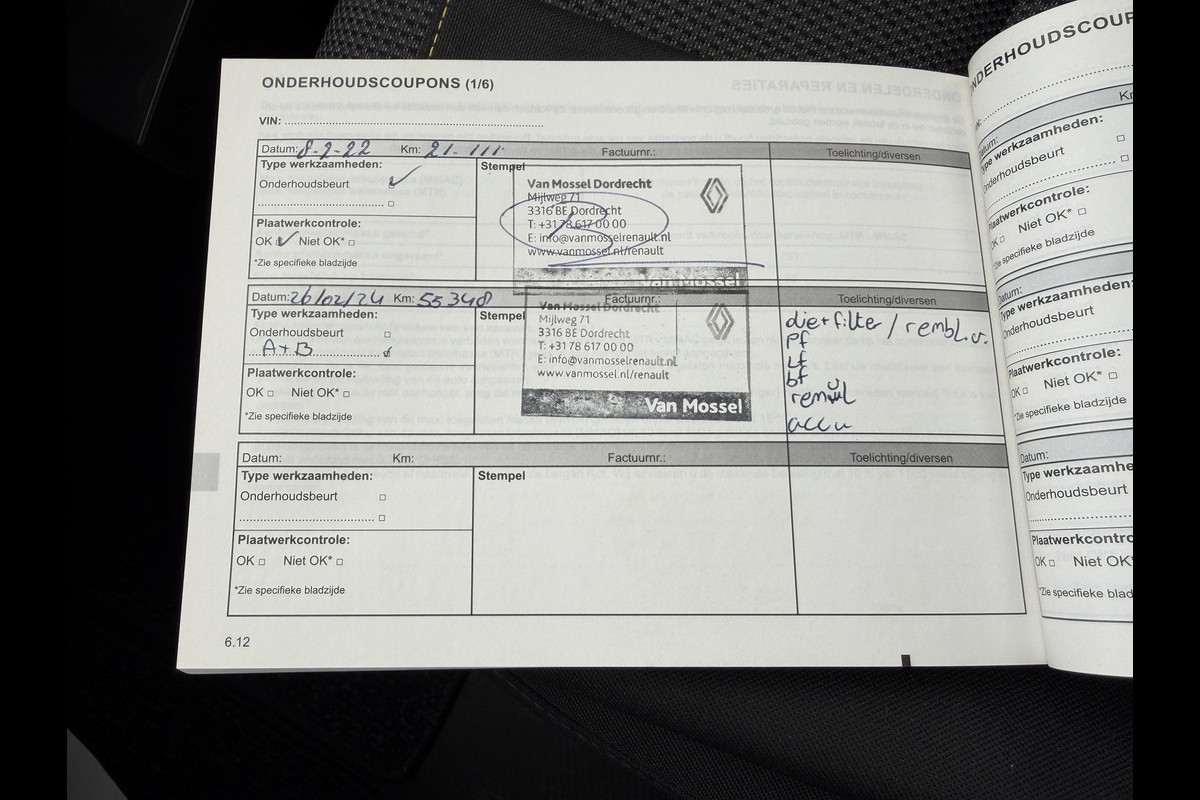 ONDERHOUDSCOUPONS (1/6)
VIN:
Datum: 8-2-22 Km: 21.111 Factuurnr.: Toelichting/diversen
Type werkzaamheden:
Onderhoudsbeurt
Plaatwerkcontrole:
OK Niet OK*
*Zie specifieke bladzijde
Stempel
Van Mossel Dordrecht
Mijlweg 71
3316 BE Dordrecht
T: +31 78 617 00 00
E: info@vanmosselrenault.nl
www.vanmossel.nl/renault
Van Mossel
Datum: 26/02/24 Km: 55348 Factuurnr.: Toelichting/diversen
Type werkzaamheden:
Onderhoudsbeurt
A+B
Plaatwerkcontrole:
OK Niet OK*
*Zie specifieke bladzijde
Stempel
Van Mossel Dordrecht
Mijlweg 71
3316 BE Dordrecht
T: +31 78 617 00 00
E: info@vanmosselrenault.nl
www.vanmossel.nl/renault
Van Mossel
olie+filter / rembl.v.
pf
Lf
bf
accu
Datum: Km: Factuurnr.: Toelichting/diversen
Type werkzaamheden:
Onderhoudsbeurt
Plaatwerkcontrole:
OK Niet OK*
*Zie specifieke bladzijde
Stempel
6.12
ONDERHOUDSCOUP
Km
Datum:
Type werkzaamheden:
Onderhoudsbeurt
Plaatwerkcontrole:
OK Niet OK*
*Zie specifieke bladzijde
Datum:
Type werkzaamheden:
Onderhoudsbeurt
Plaatwerkcontrole:
OK Niet OK*
*Zie specifieke bladzijde
Datum:
Type werkzaamhe
Onderhoudsbeurt
Plaatwerkcontro
OK Niet OK*
*Zie specifieke blad